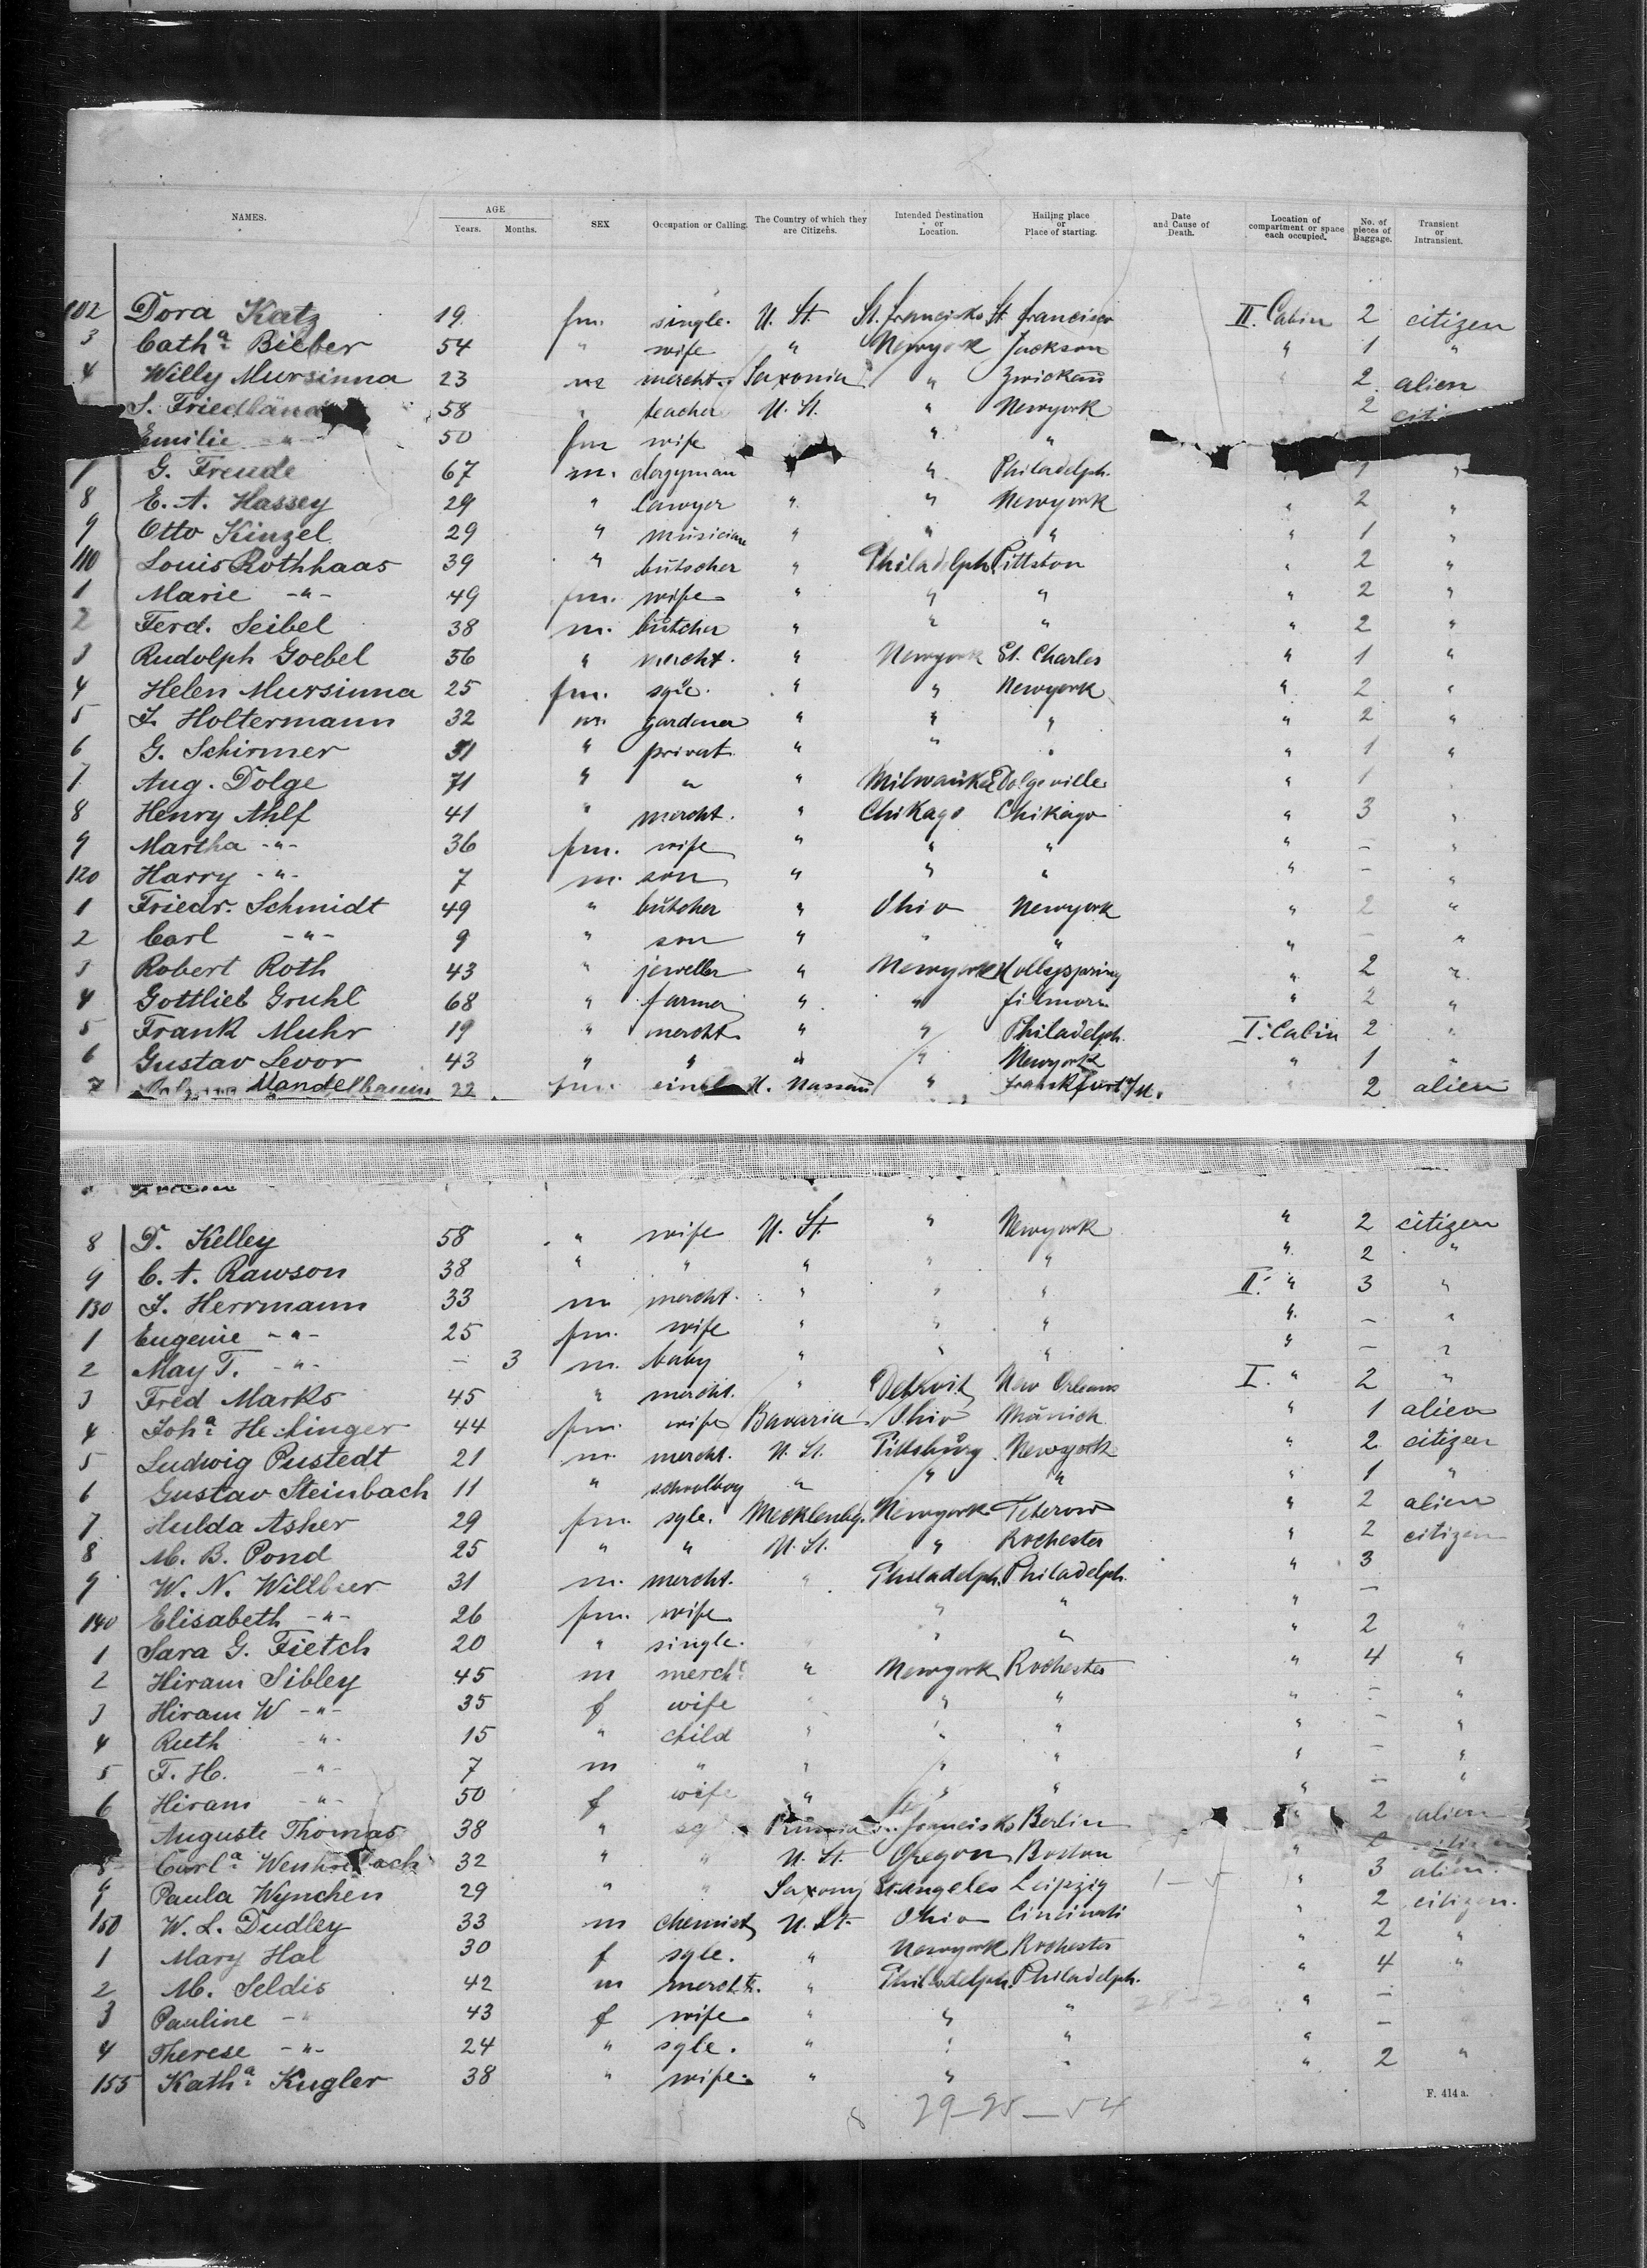 NAMES. AGE Years. Months. SEX Occupation or Calling. The Country of which they are Citizens. Intended Destination or Location. Hailing place or Place of starting. Date and Cause of Death. Location of compartment or space each occupied. No. of pieces of Baggage. Transient or Intransient.
102 Dora Katz 19 fm. single. U. St. St. francisko St. francisco II. Cabin 2 citizen
3 Cathª Bieber 54 " wife " Newyork Jackson " 1 "
4 Willy Mursinna 23 m mercht. Saxonia " Zwickau " 2 alien
S. Friedländ 58 " teacher U. St. " Newyork 2 citi
Emilie -"- 50 fm wife " "
G. Freude 67 m. clergyman " " Philadelph. 1 "
8 E. A. Hassey 29 " lawyer " " Newyork " 2 "
9 Otto Kinzel 29 " musician " " " " 1 "
110 Louis Rothhaas 39 " butscher " Philadelph. Pittston " 2 "
1 Marie -"- 49 fm. wife " " " " 2 "
2 Ferd. Seibel 38 m. butcher " " " " 2 "
3 Rudolph Goebel 56 " mercht. " Newyork St. Charles " 1 "
4 Helen Mursinna 25 fm. sgle. " " Newyork " 2 "
5 J. Holtermann 32 m. gardener " " " " 2 "
6 G. Schirmer 31 " privat. " " " " 1 "
7 Aug. Dolge 71 " " " Milwaukee Dolgeville " 1 "
8 Henry Ahlf 41 " mercht. " Chikago Chikago " 3 "
9 Martha -"- 36 fm. wife " " " " — "
120 Harry -"- 7 m. son " " " " — "
1 Friedr. Schmidt 49 " butcher " Ohio Newyork " 2 "
2 Carl -"- 9 " son " " " " — "
3 Robert Roth 43 " jeweller " Newyork Hollyspring " 2 "
4 Gottlieb Gruhl 68 " farmer " " filmore " 2 "
5 Frank Muhr 19 " mercht. " " Philadelph. I. Cabin 2 "
6 Gustav Levor 43 " " " " Newyork " 1 "
7 Mandelbaum 22 fm. H. Nassau " Frankfurt a/M. " 2 alien
8 D. Kelley 58 " wife U. St. " Newyork " 2 citizen
9 C. A. Rawson 38 " " " " " " 2 "
130 J. Herrmann 33 m mercht. " " " II. " 3 "
1 Eugenie -"- 25 fm. wife " " " " — "
2 May T. -"- — 3 m. baby " " " " — "
3 Fred Marks 45 " mercht. " Detroit New Orleans I. " 2 "
4 Johª 44 fm. wife Bavaria Ohio Münich " 1 alien
5 Ludwig Pustedt 21 m. mercht. U. St. Pittsburg Newyork " 2 citizen
6 Gustav Steinbach 11 " schoolboy " " " " 1 "
7 Hulda Asher 29 fm. sgle. Mecklenbg. Newyork Teterow " 2 alien
8 M. B. Pond 25 " " U. St. " Rochester " 2 citizen
9 W. N. Willbser 31 m. mercht. " Philadelph. Philadelph. " 3
140 Elisabeth -"- 26 fm. wife " " " —
1 Sara G. Fietch 20 " single. " " " " 2 "
2 Hiram Sibley 45 m mercht " Newyork Rochester " 4 "
3 Hiram W -"- 35 f wife " " " " — "
4 Ruth -"- 15 " child " " " " — "
5 F. H. -"- 7 m " " " " " — "
6 Hiram -"- 50 f wife " " " " — "
Auguste Thomas 38 " sg francisko Berlin " 2 alien
Carlª 32 " " U. St. Oregon Boston " 2 citizen
9 Paula Wynchen 29 " " Saxony St. angeles Leipzig " 3 alien.
150 W. L. Dudley 33 m chemist U. St. Ohio Cincinati " 2 citizen.
1 Mary Hal 30 f sgle. " Newyork Rochester " 2 "
2 M. Seldis 42 m mercht. " Philadelph. Philadelph. " 4 "
3 Pauline -"- 43 f wife " " " " —
4 Therese -"- 24 " sgle. " " " " —
155 Kathª Kugler 38 " wife " " " " 2 "
29-25-54
F. 414 a.